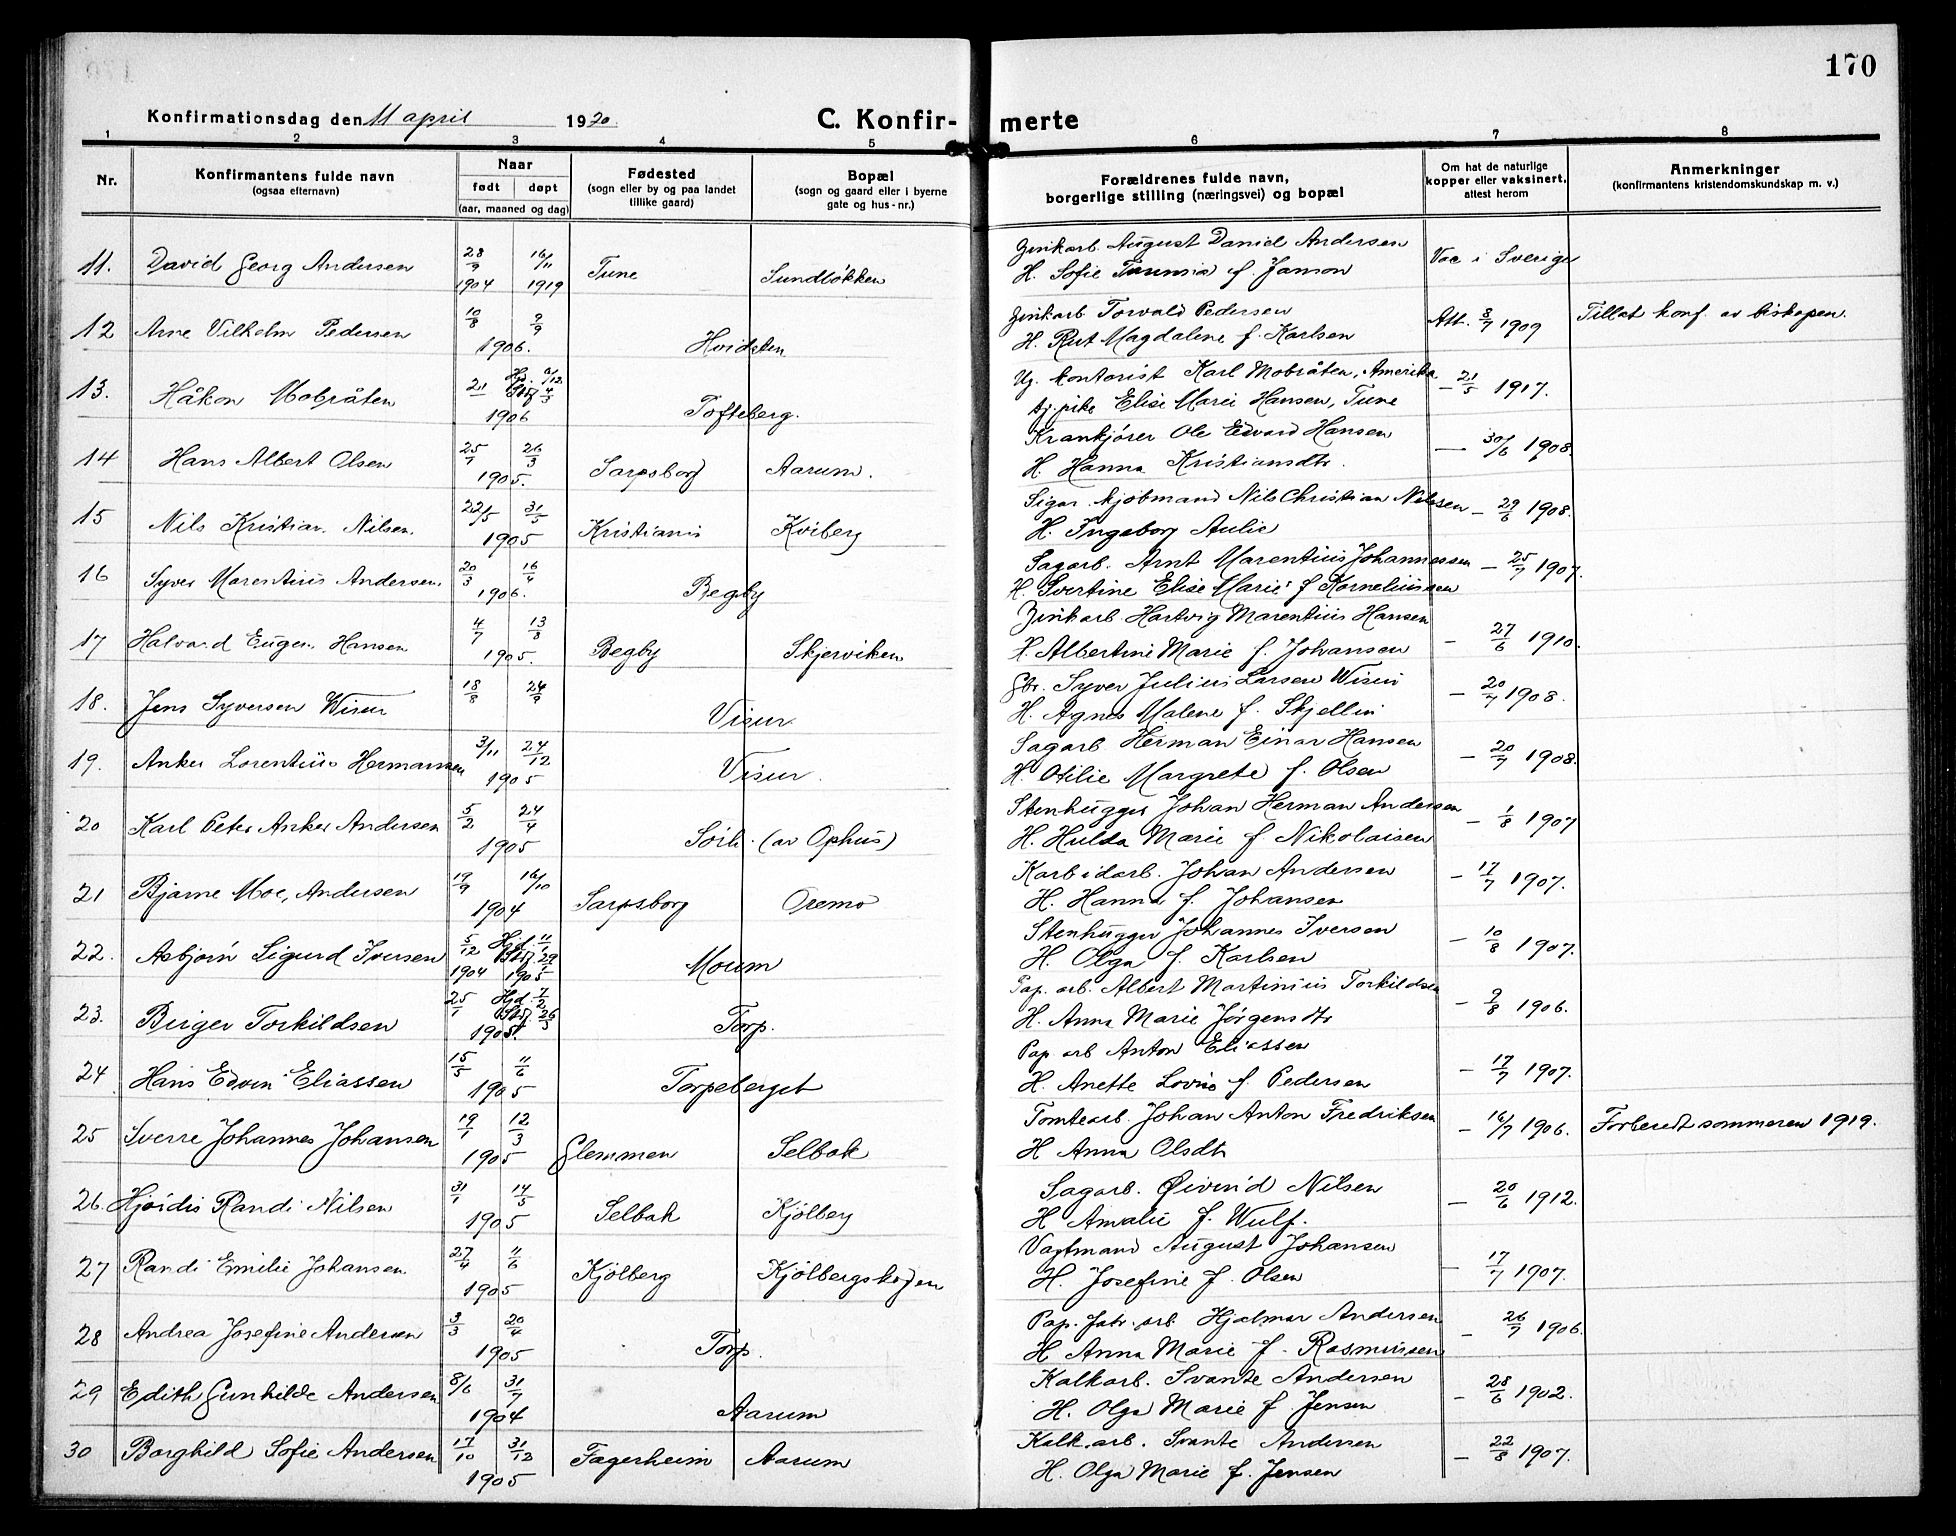 170
Konfirmationsdag den 11 april 1920. C. Konfir- merte
1 2 3 4 5 6 7 8
Nr. Konfirmantens fulde navn (ogsaa efternavn) Naar født døpt (aar, maaned og dag) Fødested (sogn eller by og paa landet tillike gaard) Bopæl (sogn og gaard eller i byerne gate og hus-nr.) Forældrenes fulde navn, borgerlige stilling (næringsvei) og bopæl Om hat de naturlige kopper eller vaksinert, attest herom Anmerkninger (konfirmantens kristendomskundskap m. v.)
11. David Georg Andersen 28/9 1904 16/11 1919 Tune Sundløkken Zinkarb. August Daniel Andersen Vac i Sverige
H. Sofie f. Janson
12 Arne Vilhelm Pedersen 10/8 2/9 1906. Hvidsten Zinkarb Torvald Pedersen Att. 8/7 1909 Tillat konf. av biskopen.
H. Rut Magdalene f. Karlsen
13. Håkon Mobråten 1906 Tofteberg. Ug. kontorist Karl Mobråten, Amerika – 21/5 1917.
tj. pike Elise Marie Hansen, Tune
14 Hans Albert Olsen 25/1 26/3 1905. Sarpsborg Aarum. Krankjører Ole Edvard Hansen – 30/6 1908.
H. Hanna Kristiansdtr.
15 Nils Kristian Nilsen. 22/5 31/5 1905 Kristiania Kviberg Sigar. kjøbmand Nils Christian Nilssen – 29/6 1908.
H. Ingeborg Aulie
16 Syver Marentius Andersen. 20/3 16/4 1906. Begby Sagarb. Arnt Marentius Johannessen – 25/7 1907.
H. Svertine Elise Marie f Korneliussen
17 Halvard Eugen Hansen 4/7 13/8 1905. Begby Skjerviken Zinkarb Hartvig Marentius Hansen – 27/6 1910.
H Albertine Marie f. Johansen
18. Jens Syversen Wisur 18/8 24/9 Visur. Gbr. Syver Julius Larsen Wisur – 20/7 1908.
H. Agnes Malene f. Skjellin
19. Anker Lorentius Hermansen 3/11 24/12 1905 Visur. Sagarb. Herman Einar Hansen – 20/7 1908.
H. Otilie Margrete f. Olsen
20 Karl Peter Anker Andersen 5/2 24/4 1905 Sorli. (av Ophus) Stenhugger Johan Herman Andersen – 1/8 1907
H. Hulda Marie f Nikolaisen
21 Bjarne Moe, Andersen 19/9 16/10 1904 Sarpsborg Oremo Karbidarb. Johan Andersen – 17/7 1907.
H. Hanna f. Johansen
22. Asbjørn Sigurd Iversen 5/12 1904 Hjd. 11/1 1905 Moum Stenhugger Johannes Iversen – 10/8 1907.
H. Olga f. Karlsen
23. Birger Torkildsen 25/1 Hjd. 7/2 26/3 1905. Torp. Pap. arb. Albert Martinius Torkildsen – 9/8 1906.
H. Anna Marie Jørgensdtr
24 Hans Edvin Eliassen 15/5 11/6 1905 Torpeberget Pap arb Anton Eliassen – 17/7 1907.
H. Anette Lovise f. Pedersen
25 Sverre Johannes Johansen 19/1 12/3 1905 Glemmen Selbak Tomtearb. Johan Anton Fredriksen – 16/7 1906. Forberedt sommeren 1919.
H Anna Olsdtr
26. Hjørdis Randi Nilsen 31/1 14/5 1905 Selbak Kjølberg Sagarb. Øivind Nilsen – 20/6 1912.
H Amalie f. Wulf.
27 Randi Emilie Johansen 27/4 11/6 1905 Kjølberg Kjølbergskogen Vagtmand August Johansen – 17/7 1907.
H. Josefine f. Olsen
28 Andrea Josefine Andersen 3/3 20/4 1905 Torp. Pap. fabr. arb Hjalmar Andersen – 26/7 1906.
H Anna Marie f. Rasmussen
29 Edith Gunhilde Andersen 8/6 31/7 1904 Aarum Kalkarb. Svante Andersen – 28/6 1902.
H. Olga Marie f Jensen
30 Borghild Sofie Andersen 17/10 31/12 1905 Fagerheim Aarum Kalk.arb. Svante Andersen – 22/8 1907.
H. Olga Marie f. Jensen